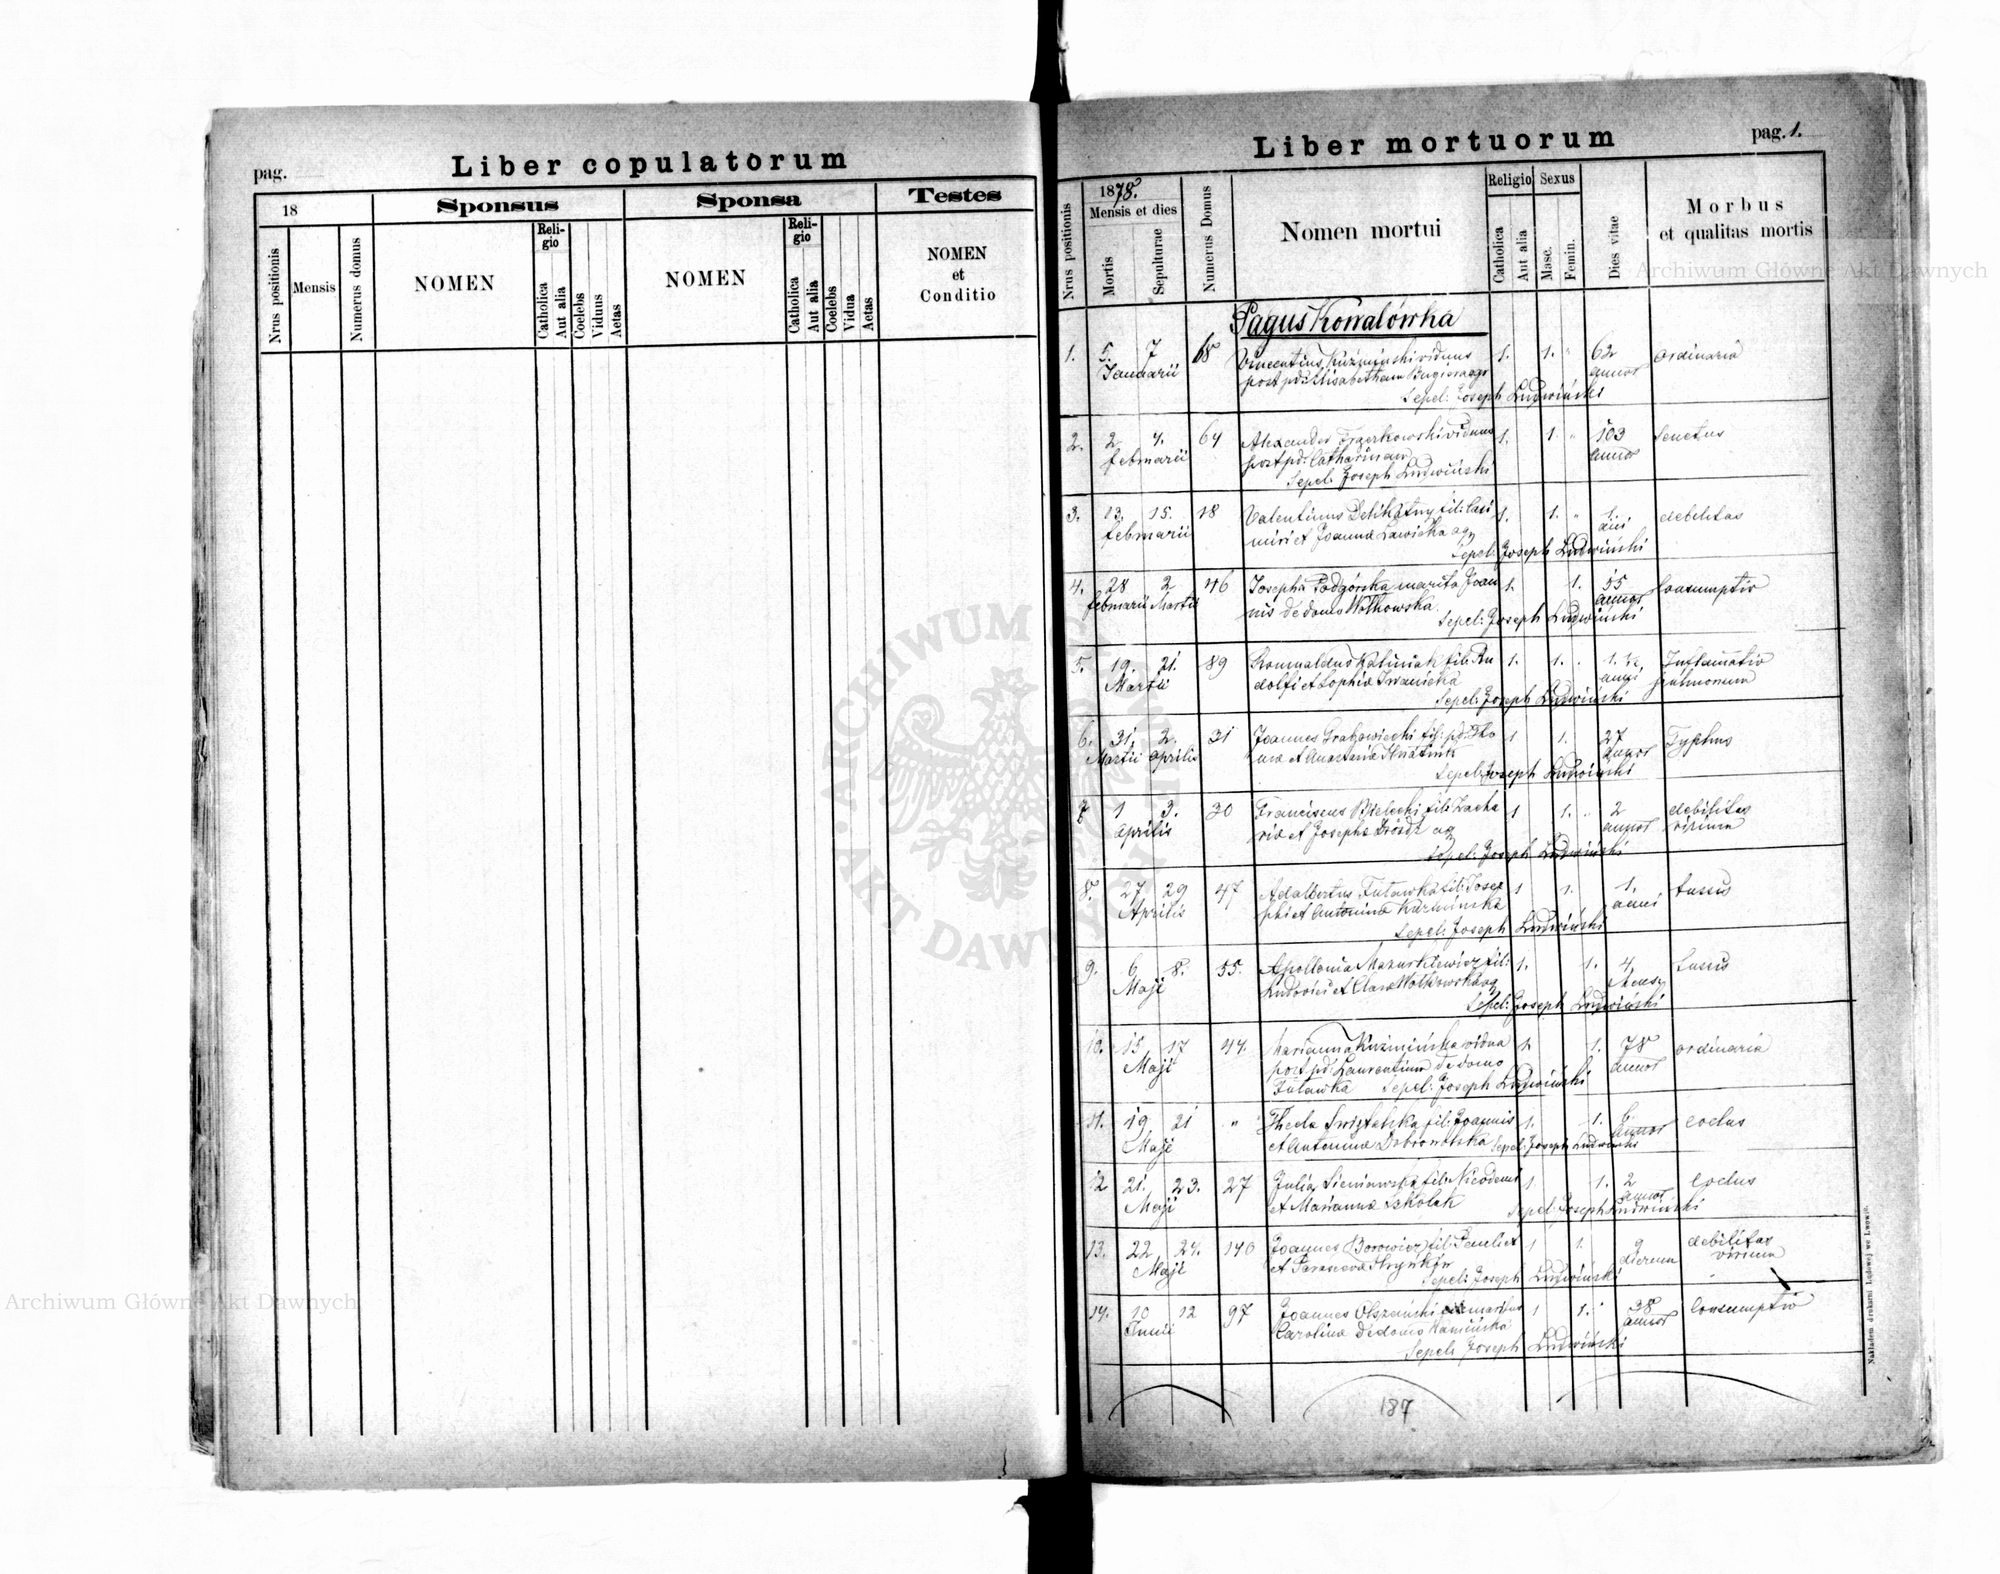 pag.
Liber copulatorum
18
Sponsus
Sponsa
Testes
Nrus positionis
Mensis
Numerus domus
NOMEN
Reli-
gio
Catholica
Aut alia
Coelebs
Viduus
Aetas
NOMEN
Reli-
gio
Catholica
Aut alia
Coelebs
Vidua
Aetas
NOMEN
et
Conditio
Liber mortuorum
pag. 1.
Nrus positionis
1878.
Mensis et dies
Mortis
Sepulturae
Numerus Domus
Nomen mortui
Religio
Catholica
Aut alia
Sexus
Masc.
Femin.
Dies vitae
Morbus
et qualitas mortis
Pagus Kowalówka
1. 5. 7 68 Vincentius Kuźmiński viduus 1. 1. " 62 ordinaria
Januarii post pd: Elisabetham annos
Sepel: Joseph Ludwiński
2. 2 4. 64 viduus 1. 1. " 103 Senectus
februarii post pd: Catharinam annos
Sepel: Joseph Ludwiński
3. 13. 15. 18 Valentinus Delikatny fil: Casi 1. 1. " 1. debilitas
februarii miri et Joanna Sawicka agr
Sepel: Joseph Ludwiński
4. 28 2 46 Josepha Podgórska marita Joan 1. 1. 55 Consumptio
februarii Martii nis de domo Wołkowska annos
Sepel: Joseph Ludwiński
5. 19. 21. 89 Romualdus Kaliniak fil: Ru 1. 1. 1. ½ Inflamatio
Martii dolfi et Sophia Iwanicka anni pulmonum
Sepel: Joseph Ludwiński
6. 31. 2. 31 Joannes fil: pd: Tho 1 1. 27 Typhus
Martii Aprilis mae et Anastasia annos
Sepel: Joseph Ludwiński
7 1 3. 30 Franciscus Bielecki fil: Zacha 1 1. 2 debilitas
Aprilis riae et Josepha agr annos virium
Sepel: Joseph Ludwiński
8. 27 29 47 Adalbertus Futawka fil: Josep 1 1. 1. tussis
Aprilis phi et Antonina Kuźmińska anni
Sepel: Joseph Ludwiński
9. 6 8. 55. Apollonia Mazurkiewicz fil: 1. 1. 4. tussis
Maji Ludovici et Clara Wołkowska agr Menses
Sepel: Joseph Ludwiński
10. 15 17 44. Marianna Kuźmińska vidua 1. 1. 78 ordinaria
Maji post pd: Laurentium de domo annos
Futawka Sepel: Joseph Ludwiński
11. 19 21 " Thecla fil: Joannis 1. 1. 6 coclus
Maji et Antonina Dobrowolska Sepel: Joseph Ludwiński annos
12 21. 23. 27 Julia Sieniawska fil: Nicodemi 1 1. 2 coclus
Maji et Marianna Szkolak Sepel: Joseph Ludwiński annos
13. 22 24. 140 Joannes Borowicz fil: Pauli et 1 1. 9 debilitas
Maji et Parasceva dierum virium
Sepel: Joseph Ludwiński
14. 10 12 97 Joannes Olszański maritus 1 1. 38 Consumptio
Junii Carolina de domo Kamińska annos
Sepel: Joseph Ludwiński
187
Nakładem drukarni Ludowej we Lwowie.
Archiwum Główne Akt Dawnych
Archiwum Główne Akt Dawnych
ARCHIWUM GŁÓWNE AKT DAWNYCH